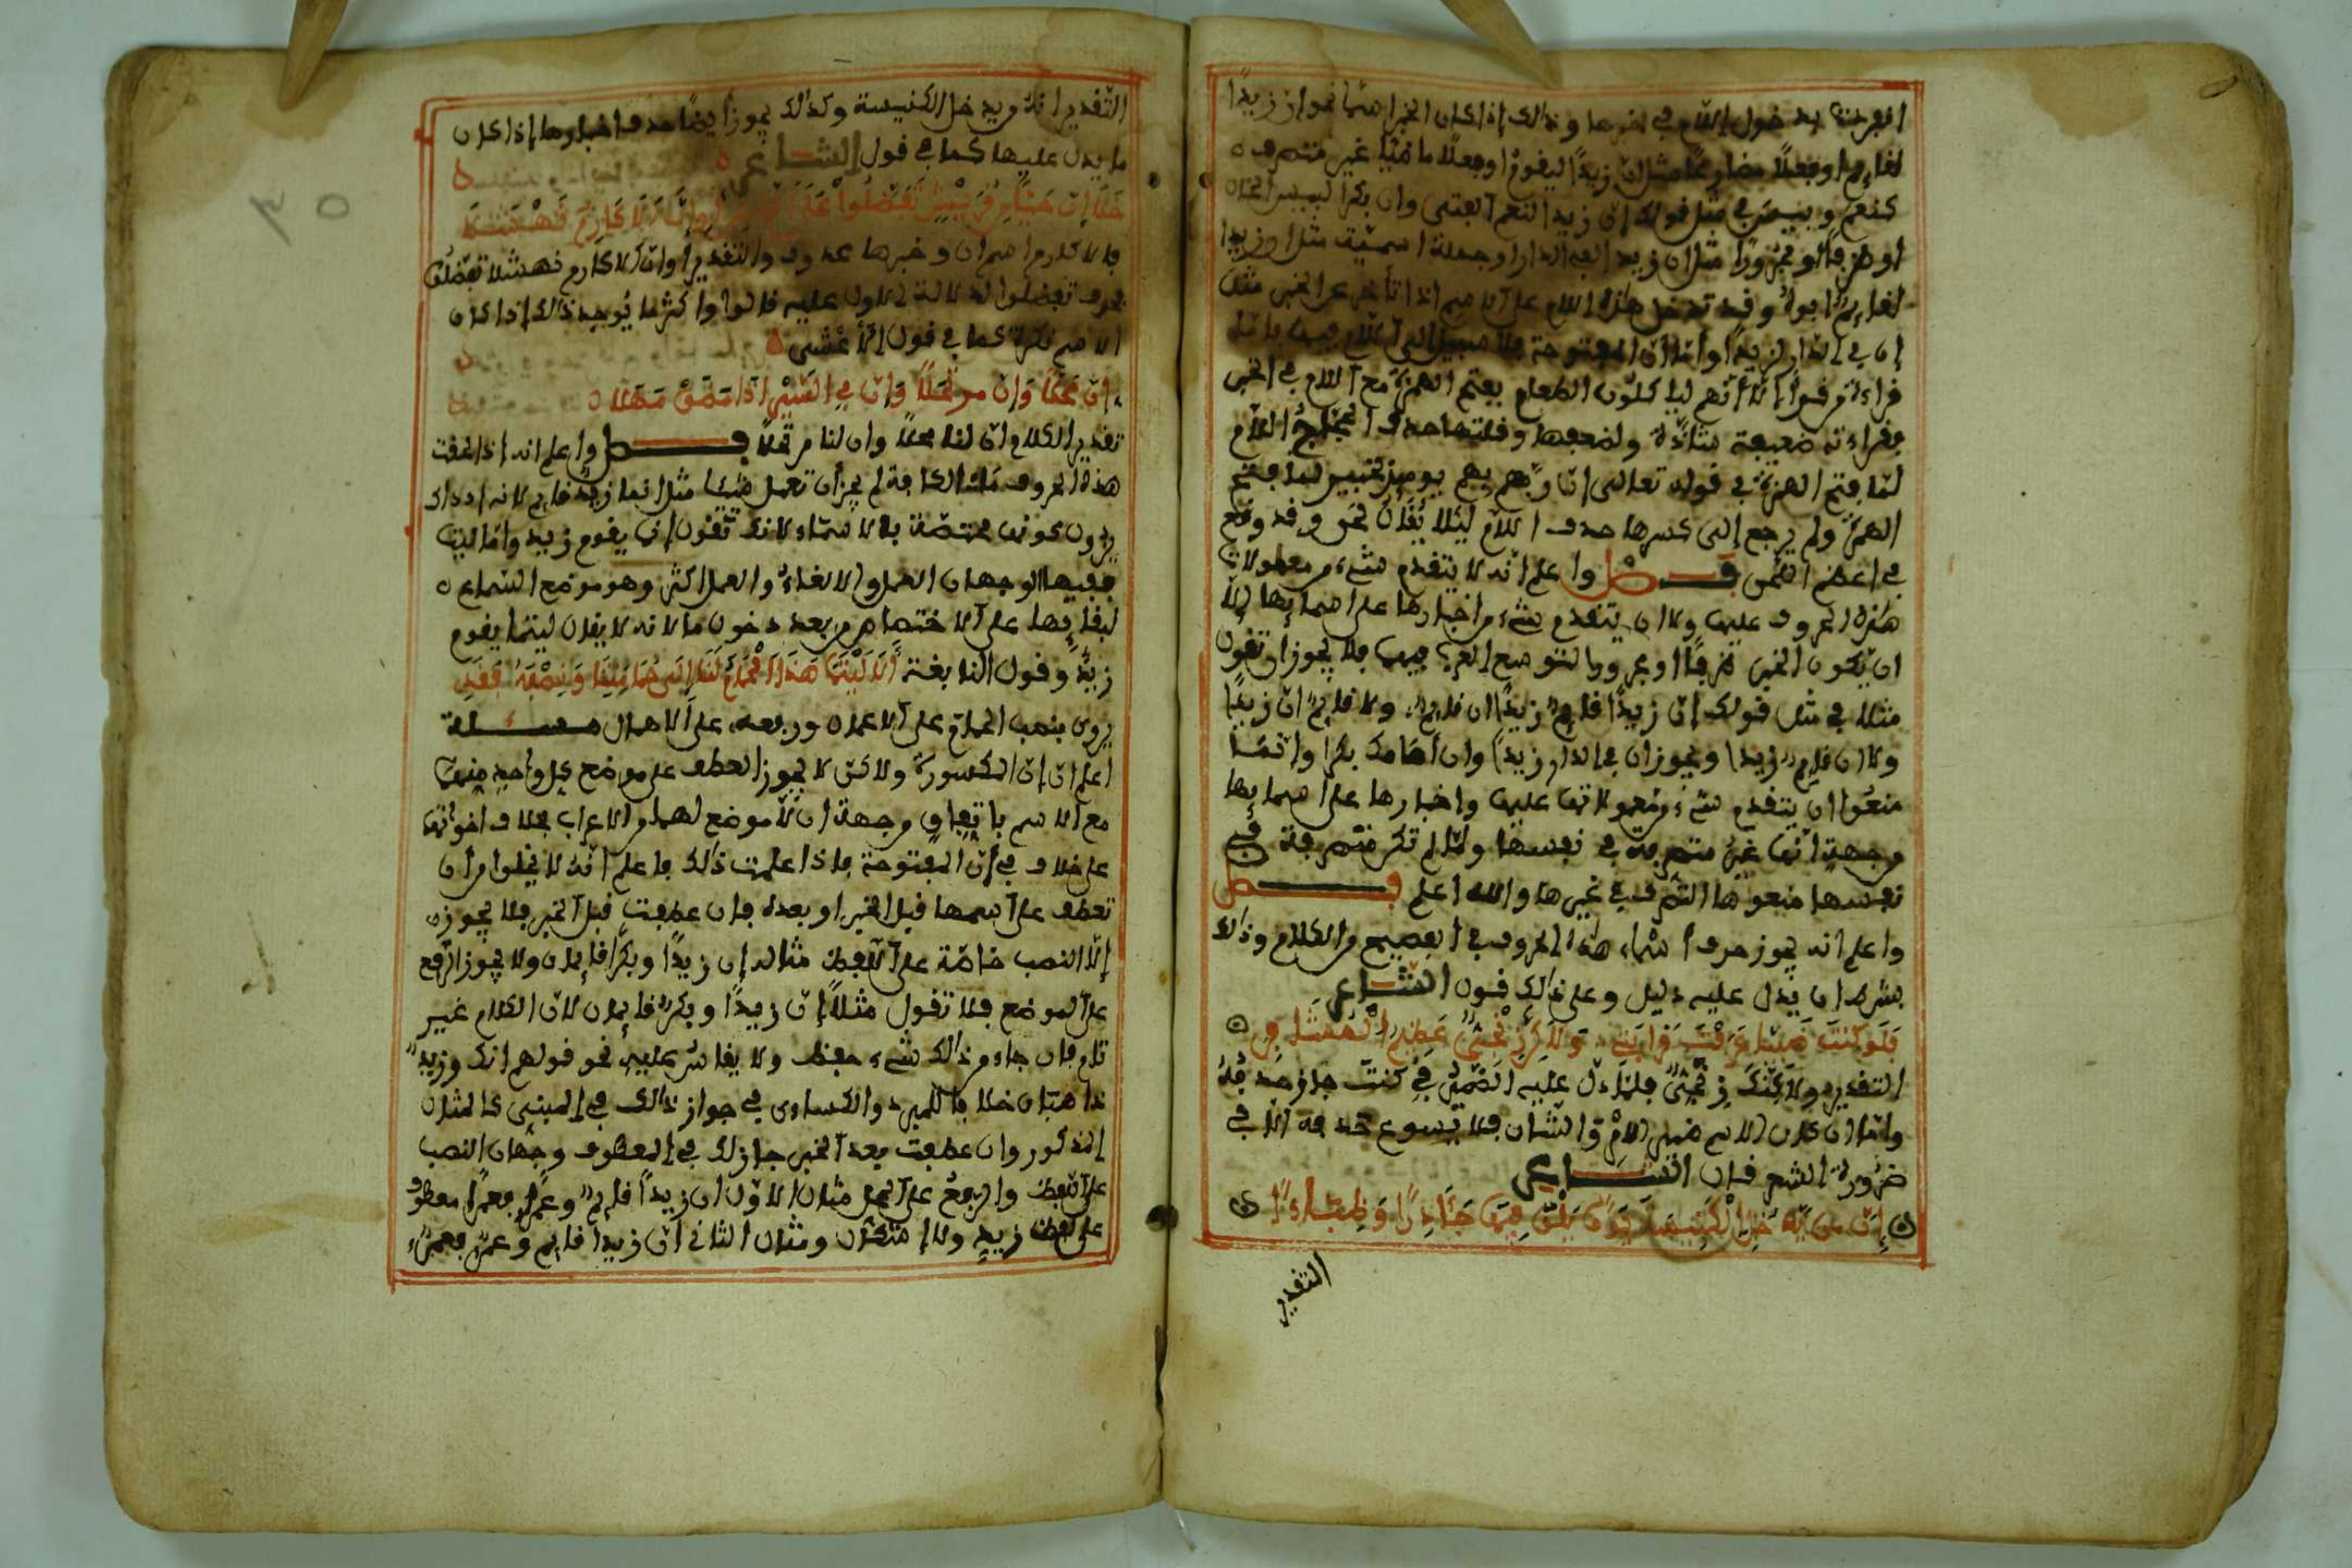 انفردت بدخول اللام في خبرها وذالك إذا كان الخبر اسمًا نحو ان زيدًا
لقايم او فعلًا مضارعًا مثل ان زيدًا ليقوم او فعلًا ماضيًا غير متصرف
كنعم وبيس في مثل قولك إن زيدا لنعم الفتى وان بكرا لبيس
او ظرفًا او مجرورًا مثل ان زيدا لفي الدار او جملة اسمية مثل ان زيدا
لقايم ابوه وقد تدخل هذه اللام على الاسم اذا تأخر عن الخبر مثل
إن في الدار لزيدًا وأما أن المفتوحة فلا سبيل الى اللام فيها فاما
قراءة من قرأ إلا أنهم لياكلون الطعام بفتح الهمزة مع اللام في الخبر
فقراءته ضعيفة شاذة ولضعفها وقلتها حذف الحجاج اللام
لما فتح الهمزة في قوله تعالى إن ربهم بهم يوميذ لخبير لما فتح
الهمزة ولم يرجع إلى كسرها حذف اللام ليلا يقال لحن وقد وقع
في اعظم اللحن فصل واعلم انه لا يتقدم شيء من معمولات
هذه الحروف عليها ولا ان يتقدم شيء من اخبارها على اسمايها إلا
ان يكون الخبر ظرفًا او مجرورا لتوسع العرب فيها فلا يجوز ان تقول
مثلا في مثل قولك إن زيدًا قايم زيدًا ان قايم ولا قايم ان زيدًا
ولا ان قايم زيدا ويجوز ان في الدار زيدًا وان أمامك بكرا وانما
منعوا ان يتقدم شيء من معمولاتها عليها واخبارها على اسمايها
من جهة انها غير متصرفة في نفسها ولما لم تكن متصرفة في
نفسها منعوها التصرف في غيرها والله اعلم فصل
واعلم انه يجوز حذف أسماء هذه الحروف في الفصيح من الكلام وذالك
بشرط ان يدل عليه دليل وعلى ذالك قول الشاعر
فلو كنت ضبيا عرفت قرابتي ولاكن زنجي عظيم المشافر
التقدير ولاكنك زنجي فلما دل عليه الضمير في كنت جاز حذفه
واما ان كان الاسم ضمير الامر والشان فلا يسوغ حذفه الا في
ضرورة الشعر قال الشاعر
إن من يدخل الكنيسة يومًا يلق فيها جآذرًا وظباءا
التقدير
التقدير انه من يدخل الكنيسة وكذالك يجوز أيضا حذف اخبارها إذا كان
ما يدل عليها كما في قول الشاعر
خلا إن حيا من قريش تفضلوا على الناس او ان الاكارم نهشلا
فالاكارم اسم ان وخبرها محذوف والتقدير او ان الاكارم نهشلا تفضلوا
فحذف تفضلوا لدلالة الاول عليه قالوا واكثر ما يوجد ذالك إذا كان
الاسم نكرة كما في قول الأعشى
إن محلا وإن مرتحلًا وإن في السفر إذا مضوا مهلا
تقدير الكلام ان لنا محلا وان لنا مرتحلًا فصل واعلم انه اذا لحقت
هذه الحروف ما الكافة لم يجز أن تعمل شيئا مثل انما زيد قايم لانه اذ ذاك
يزول كونها مختصة بالاسماء لانك تقول انما يقوم زيد واما ليت
ففيها الوجهان العمل والالغاء والعمل اكثر وهو موضع السماع
لبقايها على الاختصاص بعد دخول ما لانه لا يقال ليتما يقوم
زيد وقول النابغة ألا ليتما هذا الحمام لنا إلى حمامتنا ونصفه فقد
يروى بنصب الحمام على الاعمال ورفعه على الاهمال مسئلة
اعلم ان إن المكسورة ولاكن لا يجوز العطف على موضع كل واحد منهما
مع الاسم باتفاق من جهة ان لا موضع لهما من الاعراب بخلاف اخواتها
على خلاف في أن المفتوحة فاذا علمت ذالك فاعلم انه لا يخلوا من أن
تعطف على اسمها قبل الخبر او بعده فان عطفت قبل الخبر فلا يجوز
إلا النصب خاصة على اللفظ مثاله إن زيدًا وبكرًا قايمان ولا يجوز الرفع
على الموضع فلا تقول مثلًا إن زيدًا وبكر قايمان لان الكلام غير
تام فان جاء من ذالك شيء حفظ ولا يقاس عليه نحو قولهم انك وزيد
ذاهبان خلافا للمبرد والكساءى في جواز ذالك في المبني كالمثال
المذكور وان عطفت بعد الخبر جاز لك في المعطوف وجهان النصب
على اللفظ والرفع على المحل مثال الاول ان زيدًا قايم وعمرًا فعمرًا معطوف
على لفظ زيد ولا إشكال ومثال الثاني ان زيدا قايم وعمرو فعمرو